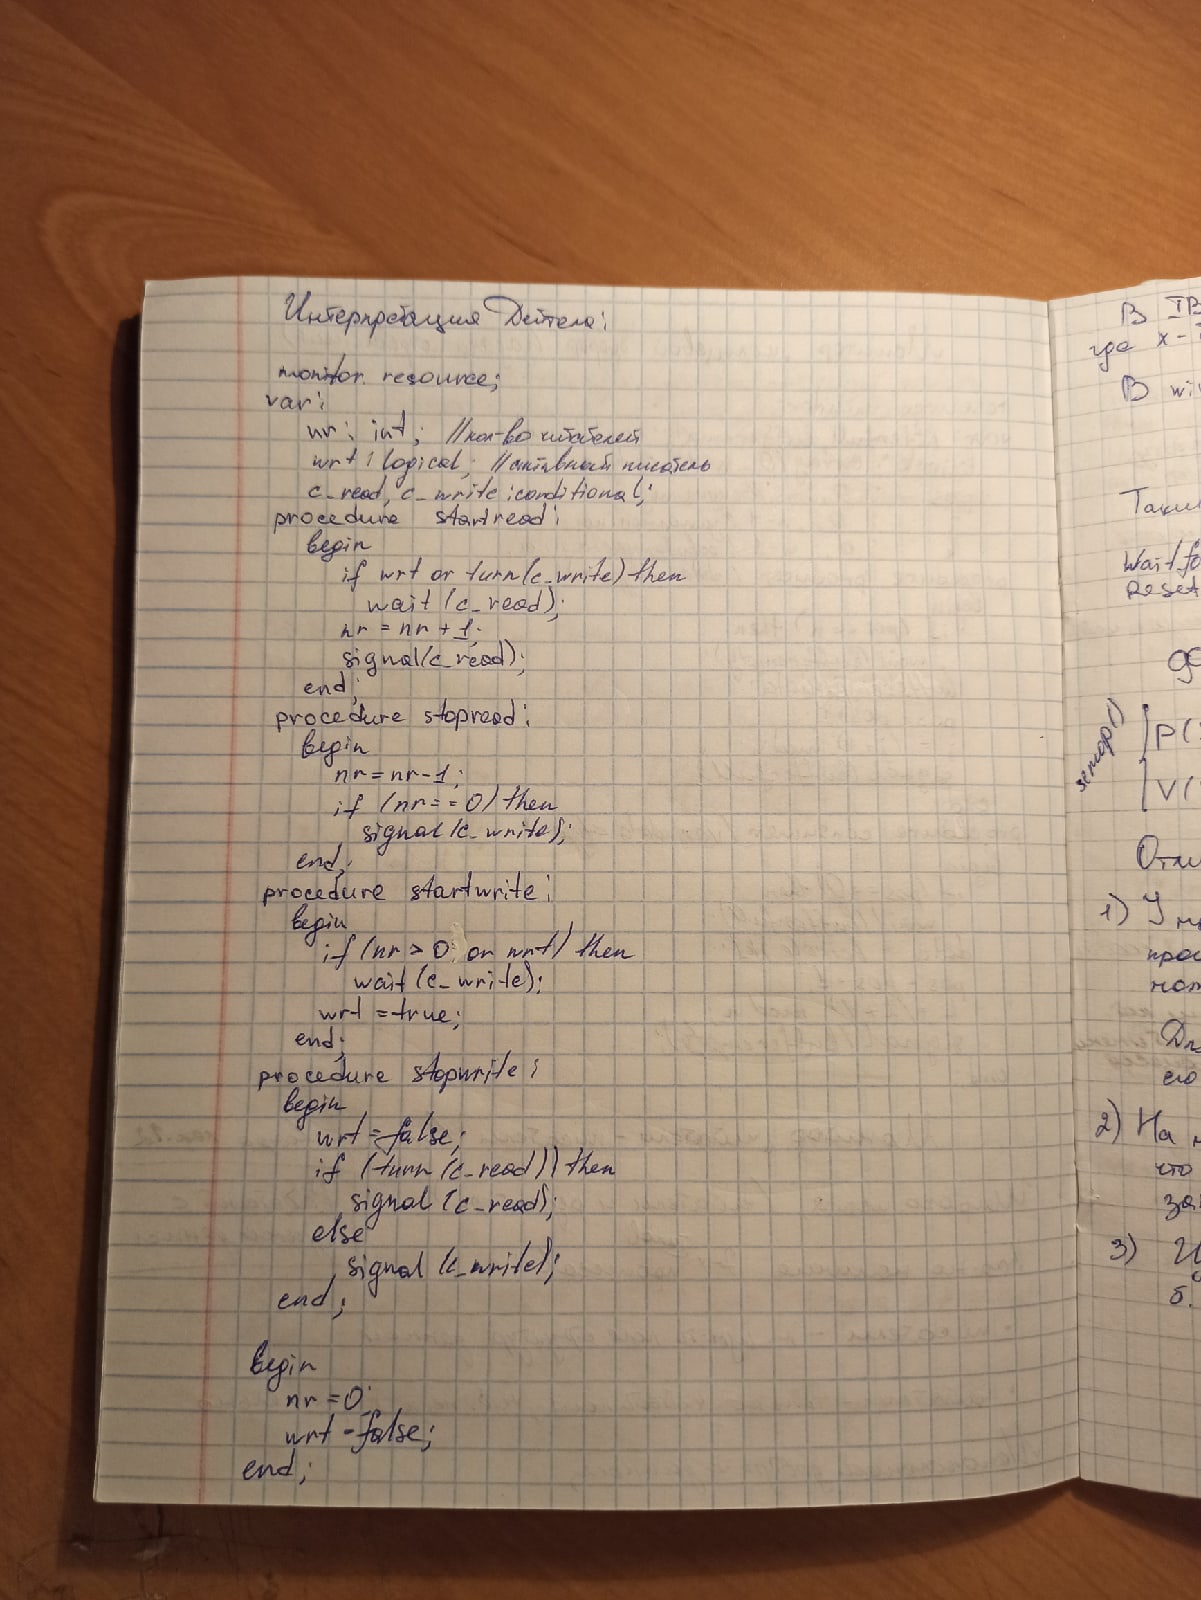 Интерпретация Дейтела:
monitor resource;
var:
nr: int; //кол-во читателей
wrt: logical; //активный писатель
c_read, c_write: conditional;
procedure startread:
begin
if wrt or turn(c_write) then
wait (c_read);
nr = nr + 1;
signal(c_read);
end;
procedure stopread:
begin
nr = nr-1;
if (nr == 0) then
signal (c_write);
end;
procedure startwrite:
begin
if (nr > 0 or wrt) then
wait (c_write);
wrt = true;
end;
procedure stopwrite:
begin
wrt = false;
if (turn (c_read)) then
signal (c_read);
else
signal (c_write);
end;
begin
nr = 0;
wrt = false;
end;
В
где x -
В
Wait_fo
Reset
semop()
P(
V(
1) У
2) На
что
3)
б.